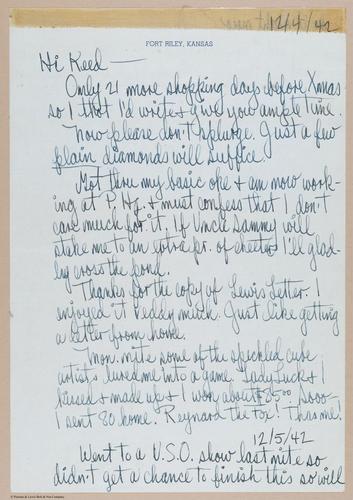 12/4/42
FORT RILEY, KANSAS
Hi Reed —
Only 21 more shopping days before Xmas
so I that I'd write & give you ample time.
Now please don't splurge. Just a few
plain diamonds will suffice.
Got thru my basic oke & am now work-
ing at P. Hq. & must confess that I don't
care much for it. If Uncle Sammy will
stake me to an extra pr. of sheets I'll glad-
ly cross the pond.
Thanks for the copy of Lewis Letter. I
enjoyed it veddy much. Just like getting
a letter from home.
Mon. nite some of the speckled cube
artists lured me into a game. Lady Luck & I
kissed & made up & I won about $85.00. Sooo-
I sent 80 home. Reynard the Fox! Thas me!
12/5/42
Went to a U.S.O. show last nite so
didn't get a chance to finish this so will